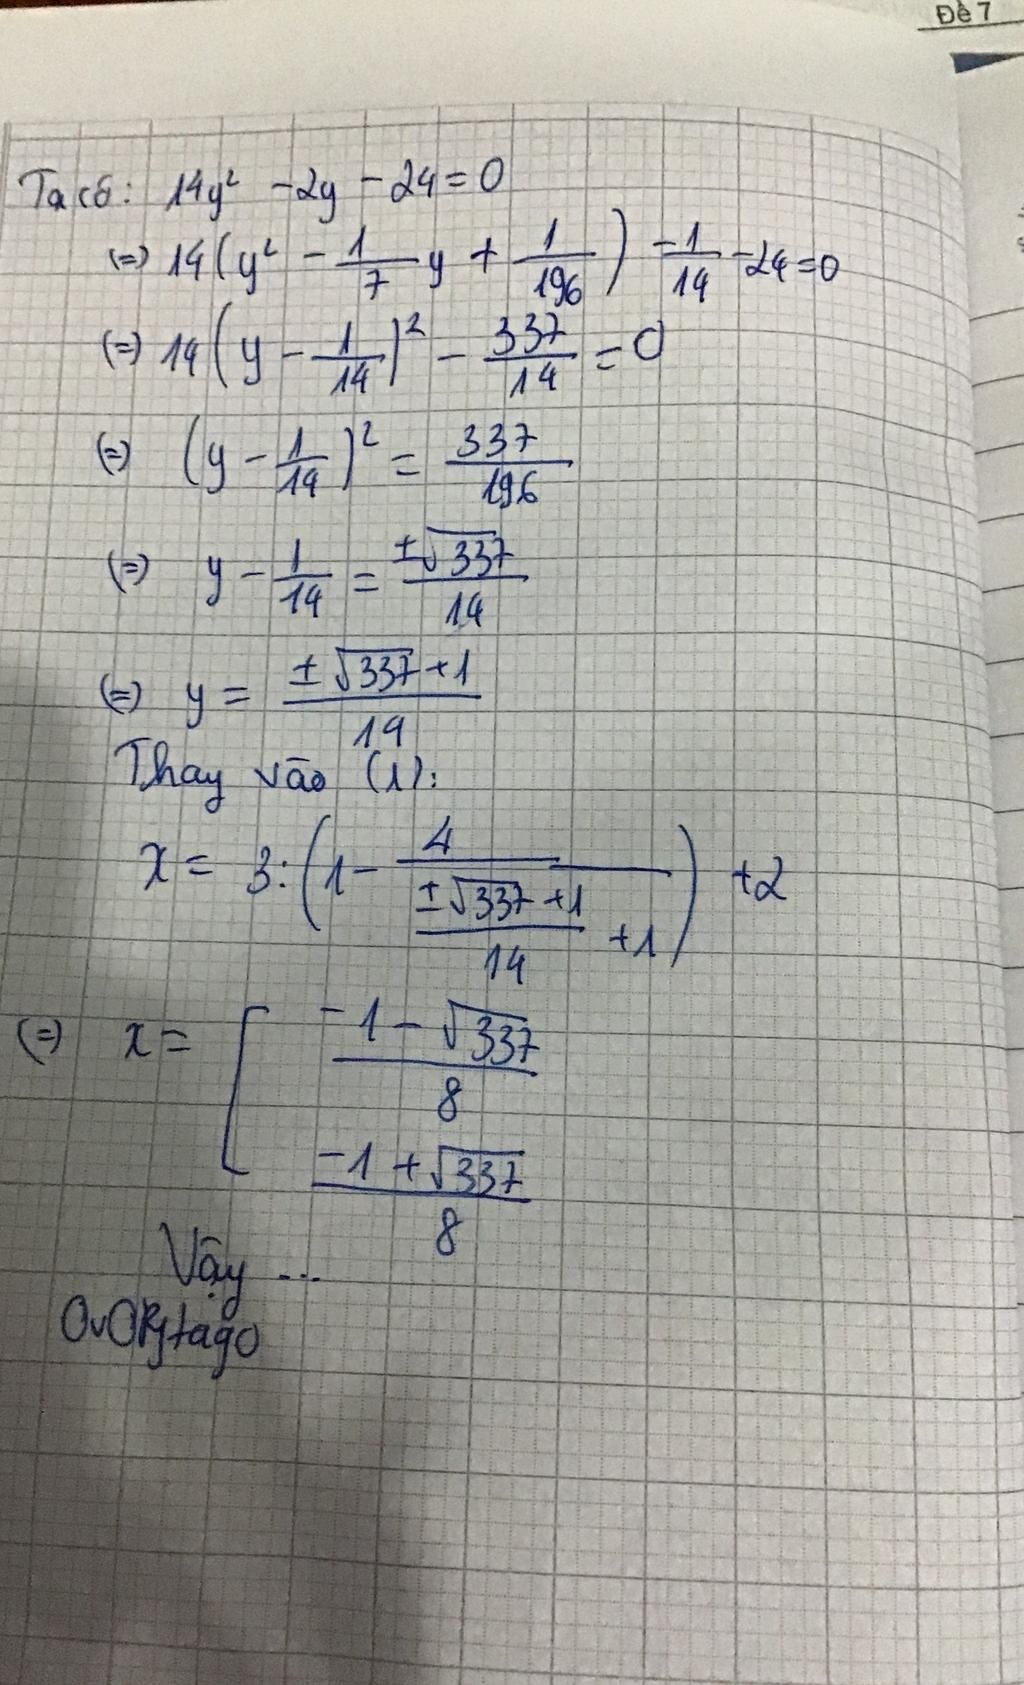 Đề 7
Ta có: 14y² - 2y - 24 = 0
(=) 14(y² - 1/7 y + 1/196) - 1/14 - 24 = 0
(=) 14(y - 1/14)² - 337/14 = 0
(=) (y - 1/14)² = 337/196
(=) y - 1/14 = ±√337/14
(=) y = (±√337 + 1)/14
Thay vào (1):
x = 3 : (1 - 4/((±√337 + 1)/14 + 1)) + 2
(=) x = [ (-1 - √337)/8
(-1 + √337)/8
Vậy ...
OvOPytago